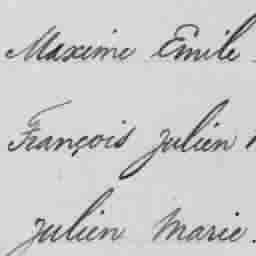 Maxime Emile
François Julien
Julien Marie.